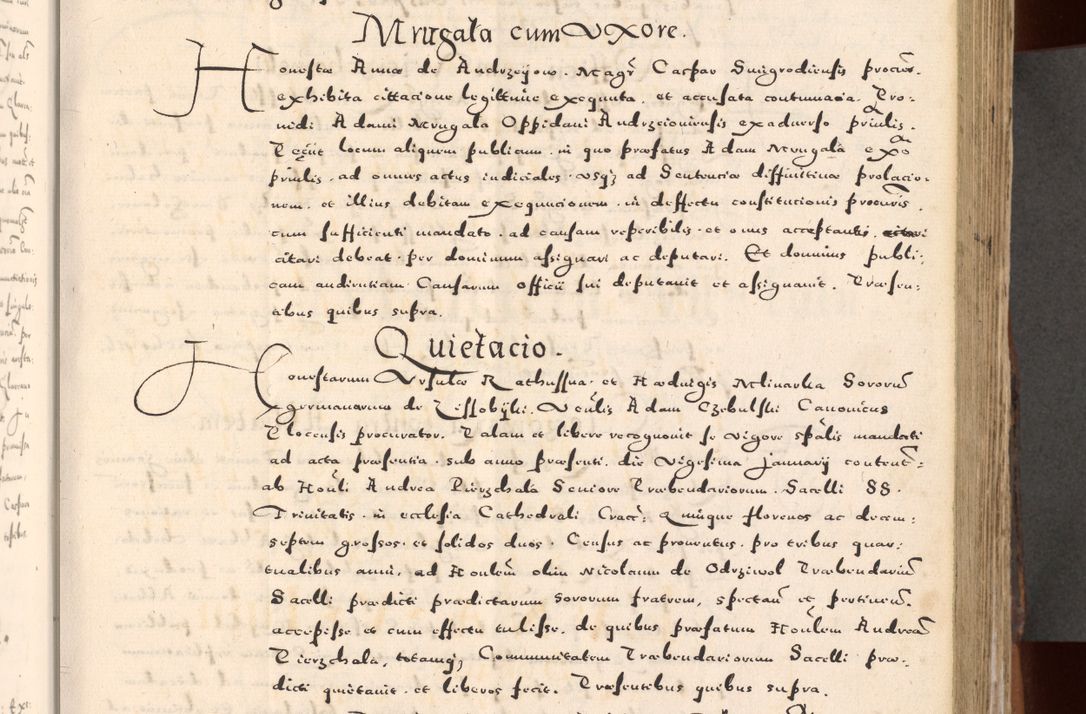 Mrugała cum Uxore.
Honestæ Annæ de Andrzeyow. Magr Caspar Smigrodiensis procur.
exhibita cittacione legittime exequuta. et accusata contumacia. Pro-
uidi Adami Mrugała Oppidani Andrzeiouiensis ex aduerso priulis.
Petiit locum aliquem publicum. in quo præfatus Adam Mrugała exõ
priulis. ad omnes actus iudiciales. usqz ad Sententiæ diffinitiuæ prolacio-
nem. et illius debitam exequucionem. in deffectu constitucionis procuris.
cum sufficienti mandato. ad causam reperibilis. et onus acceptantis.
citari debeat. per dominum assignari ac deputari. Et dominus publi-
cam audientiam Causarum officii sui deputauit et assignauit. Præsen-
tibus quibus supra.
Quietacio.
Honestarum Ursulæ Rathussna. et Hæduigis Mlinarka Sororũ
germanarum de Zessobyki. Venlis Adam Czebulski Canonicus
Plocensis procurator. Palam et libere recognouit se uigore spãlis mandati
ad acta præsentia. sub anno præsenti. die uigesima Januarij content:
ab Honli Andrea Pierzchala Seniore Præbendariorum. Sacelli SS.
Trinitatis. in ecclesia Cathedrali Cracc: Quinque florenos ac decem:
septem grossos. et solidos duos. Census ac prouentus. pro tribus quar:
tualibus anni, ad Honlem olim Nicolaum de Odrziwol Præbendariũ
Sacelli prædicti prædictarum sororum fratrem, spectañ et pertineñ.
accepisse et cum effectu tulisse. de quibus præfatum Honlem Andreã
Pierzchala, totamqz Communitatem Præbendariorum Sacelli præ-
dicti quietauit. et liberos fecit. Præsentibus quibus supra.